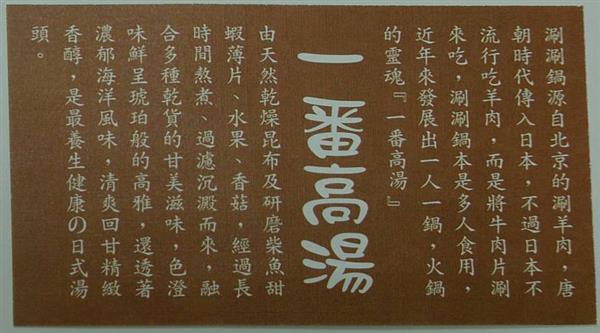 涮涮鍋源自北京的涮羊肉，唐
朝時代傳入日本，不過日本不
流行吃羊肉，而是將牛肉片涮
來吃，涮涮鍋本是多人食用，
近年來發展出一人一鍋，火鍋
的靈魂『一番高湯』
一番高湯
由天然乾燥昆布及研磨柴魚甜
蝦薄片、水果、香菇，經過長
時間熬煮、過濾沉澱而來，融
合多種乾貨的甘美滋味，色澄
味鮮呈琥珀般的高雅，還透著
濃郁海洋風味，清爽回甘精緻
香醇，是最養生健康の日式湯
頭。